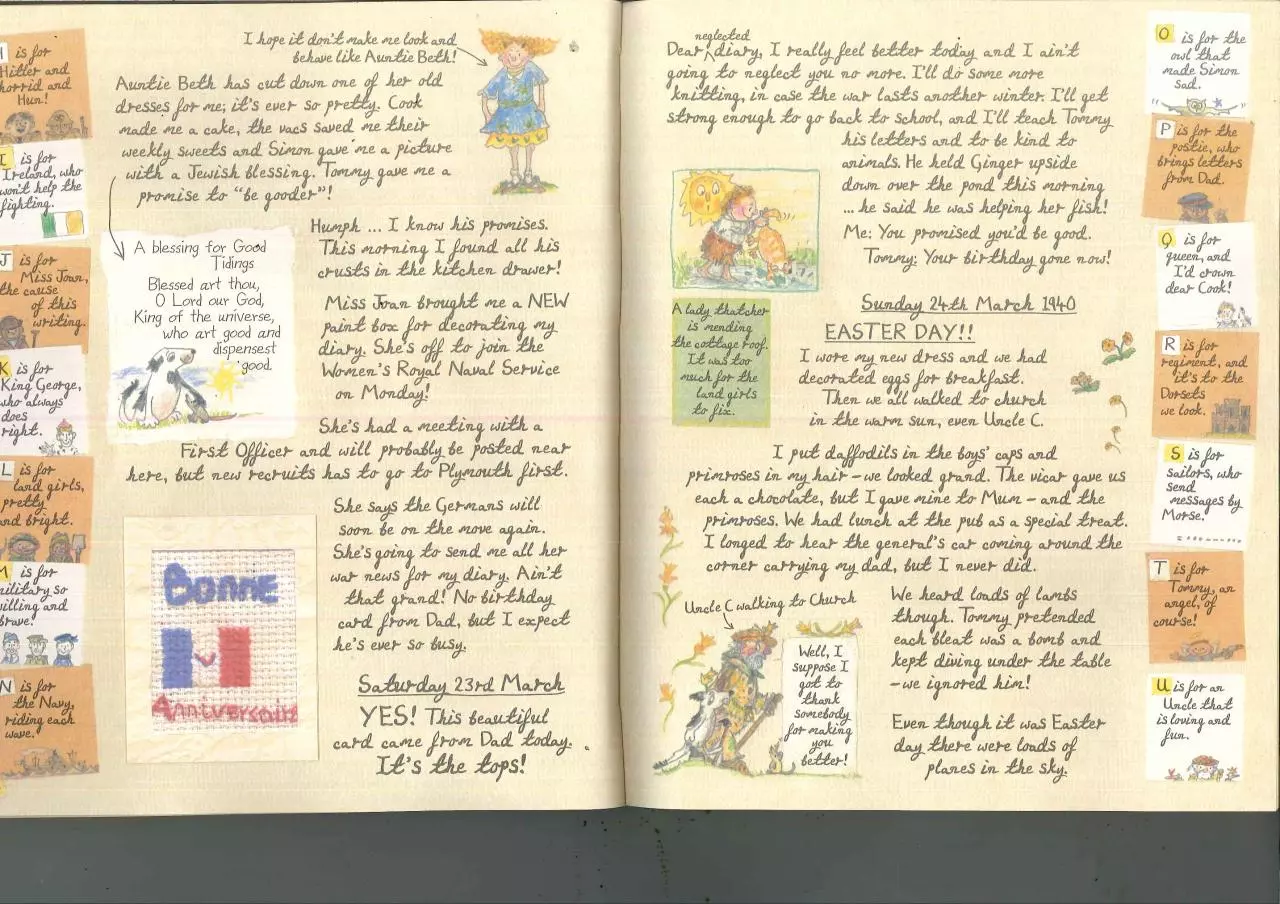 I hope it don't make me look and
behave like Auntie Beth!
Auntie Beth has cut down one of her old
dresses for me; it's ever so pretty. Cook
made me a cake, the vacs saved me their
weekly sweets and Simon gave me a picture
with a Jewish blessing. Tommy gave me a
promise to "be gooder"!
A blessing for Good
Tidings
Blessed art thou,
O Lord our God,
King of the universe,
who art good and
dispensest
good.
Humph ... I know his promises.
This morning I found all his
crusts in the kitchen drawer!
Miss Joan brought me a NEW
paint box for decorating my
diary. She's off to join the
Women's Royal Naval Service
on Monday!
She's had a meeting with a
First Officer and will probably be posted near
here, but new recruits has to go to Plymouth first.
She says the Germans will
soon be on the move again.
She's going to send me all her
war news for my diary. Ain't
that grand! No birthday
card from Dad, but I expect
he's ever so busy.
Bonne
Anniversaire
Saturday 23rd March
YES! This beautiful
card came from Dad today.
It's the tops!
H is for
Hitler and
horrid and
Hun!
I is for
Ireland, who
won't help the
fighting.
J is for
Miss Joan,
the cause
of this
writing.
K is for
King George,
who always
does
right.
L is for
land girls,
pretty
and bright.
M is for
military so
willing and
brave.
N is for
the Navy,
riding each
wave.
neglected
Dear diary, I really feel better today and I ain't
going to neglect you no more. I'll do some more
knitting, in case the war lasts another winter. I'll get
strong enough to go back to school, and I'll teach Tommy
his letters and to be kind to
animals. He held Ginger upside
down over the pond this morning
... he said he was helping her fish!
Me: You promised you'd be good.
Tommy: Your birthday gone now!
A lady thatcher
is mending
the cottage roof.
It was too
much for the
land girls
to fix.
Sunday 24th March 1940
EASTER DAY!!
I wore my new dress and we had
decorated eggs for breakfast.
Then we all walked to church
in the warm sun, even Uncle C.
I put daffodils in the boys' caps and
primroses in my hair – we looked grand. The vicar gave us
each a chocolate, but I gave mine to Mum – and the
primroses. We had lunch at the pub as a special treat.
I longed to hear the general's car coming around the
corner carrying my dad, but I never did.
Uncle C walking to Church
Well, I
suppose I
got to
thank
somebody
for making
you
better!
We heard loads of lambs
though. Tommy pretended
each bleat was a bomb and
kept diving under the table
– we ignored him!
Even though it was Easter
day there were loads of
planes in the sky.
O is for the
owl that
made Simon
sad.
P is for the
postie, who
brings letters
from Dad.
Q is for
queen, and
I'd crown
dear Cook!
R is for
regiment, and
it's to the
Dorsets
we look.
S is for
sailors, who
send
messages by
Morse.
T is for
Tommy, an
angel, of
course!
U is for an
Uncle that
is loving and
fun.